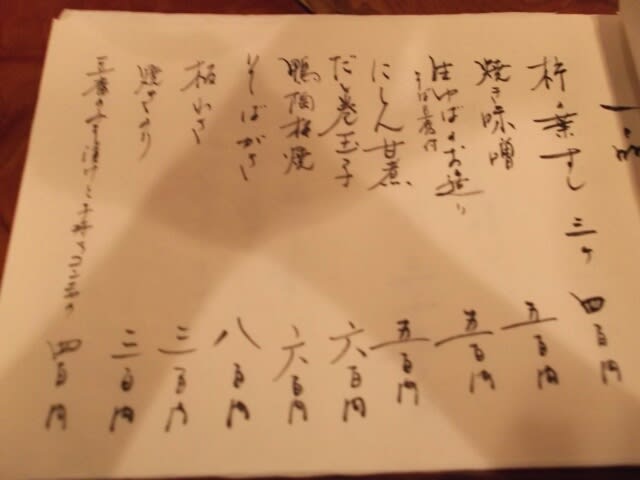 一品
柿の葉すし 三ヶ 四百円
焼き味噌 五百円
生ゆばのお造り 五百円
にしん甘煮 五百円
だし巻玉子 六百円
鴨陶板焼 六百円
そばがき 八百円
板わさ 三百円
焼のり 三百円
四百円